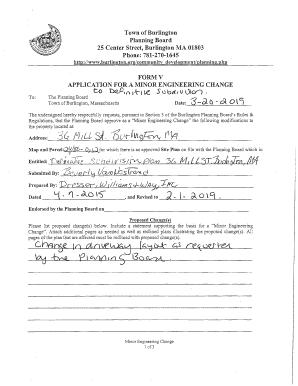 Town of Burlington
Planning Board
25 Center Street, Burlington MA 01803
Phone: 781-270-1645
http://www.burlington.org/community_development/planning.php
FORM V
APPLICATION FOR A MINOR ENGINEERING CHANGE
to Definitive Subdivision.
To: The Planning Board
Town of Burlington, Massachusetts Date: 3-20-2019
The undersigned hereby respectfully requests, pursuant to Section 5 of the Burlington Planning Board's Rules &
Regulations, that the Planning Board approve as a "Minor Engineering Change" the following modifications to
the property located at
Address: 36 Mill St. Burlington, MA
Map and Parcel for which there is an approved Site Plan on file with the Planning Board which is
Entitled: Definitive Subdivision Plan 36 Mill ST. Burlington, MA
Submitted By: Beverly
Prepared By: Dresser, Williams & Way, Inc
Dated 4-7-2015, and Revised to 2-1-2019.
Endorsed by the Planning Board on
Proposed Change(s)
Please list proposed change(s) below. Include a statement supporting the basis for a "Minor Engineering
Change". Attach additional pages as needed as well as redlined plans illustrating the proposed change(s). All
pages of the plan that are affected must be redlined with proposed change(s).
Change in driveway layout as requested
by the Planning Board.
Minor Engineering Change
1 of 3